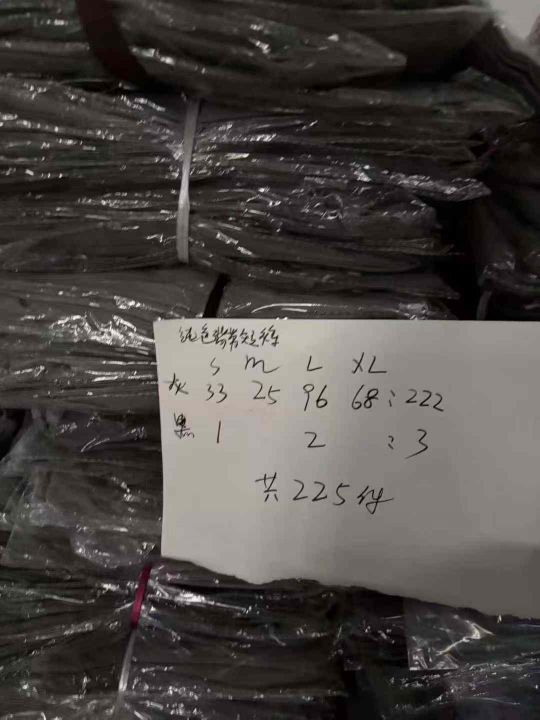 纯色
S M L XL
灰 33 25 96 68:222
黑 1 2 :3
共225件